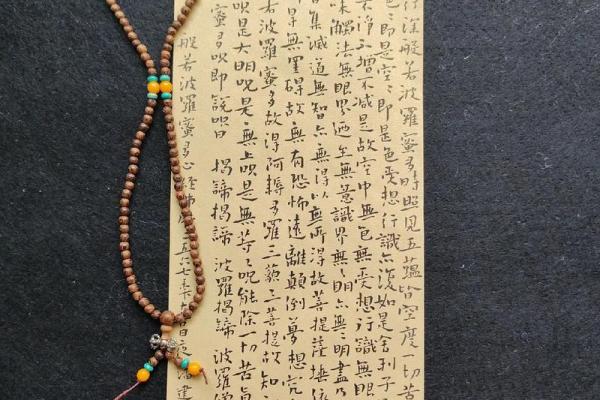 行深般若波羅蜜多時照見五蘊皆空度一切苦
色〻即是空〻即是色受想行識亦復如是舍利子
不淨不增不減是故空中無色無受想行識無眼
味觸法無眼界迺至無意識界無〻明亦無〻明盡乃
集滅道無智亦無得以無所得故菩提薩埵依
無罣碍故無有恐怖遠離顛倒夢想究
若波羅蜜多故得阿耨多羅三藐三菩提故知
呪是大明呪是無上呪是無等〻呪能除一切苦真
蜜多呪即說呪曰 揭諦揭諦 波羅揭諦 波羅僧
般若波羅蜜多心經